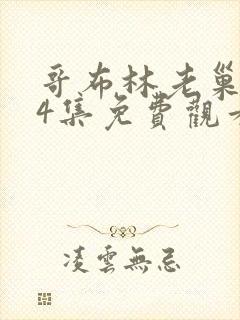 哥布林老巢
4集免費觀看
凌雲無忌